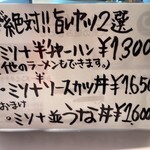 絶対!!旨いヤツ2選
ミソナ半チャーハン ¥1,300
(他のラーメンもできます。)
ミソナソースカツ丼 ¥1,650
おまけ
ミソナ並うな丼 ¥2,600